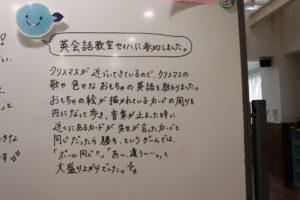 英会話教室セイハに参加しました。
クリスマスが近づいてきているので、クリスマスの
歌や色々なおもちゃの英語を教わりました。
おもちゃの絵が描かれているカードの周りを
円になって歩き、音楽が止まった時に
近くにあるカードが先生が言ったカードと
同じだったら勝ち、というゲームでは、
「ボール同じ!!」「あ〜、違う〜…。」と
大盛り上がりでした。